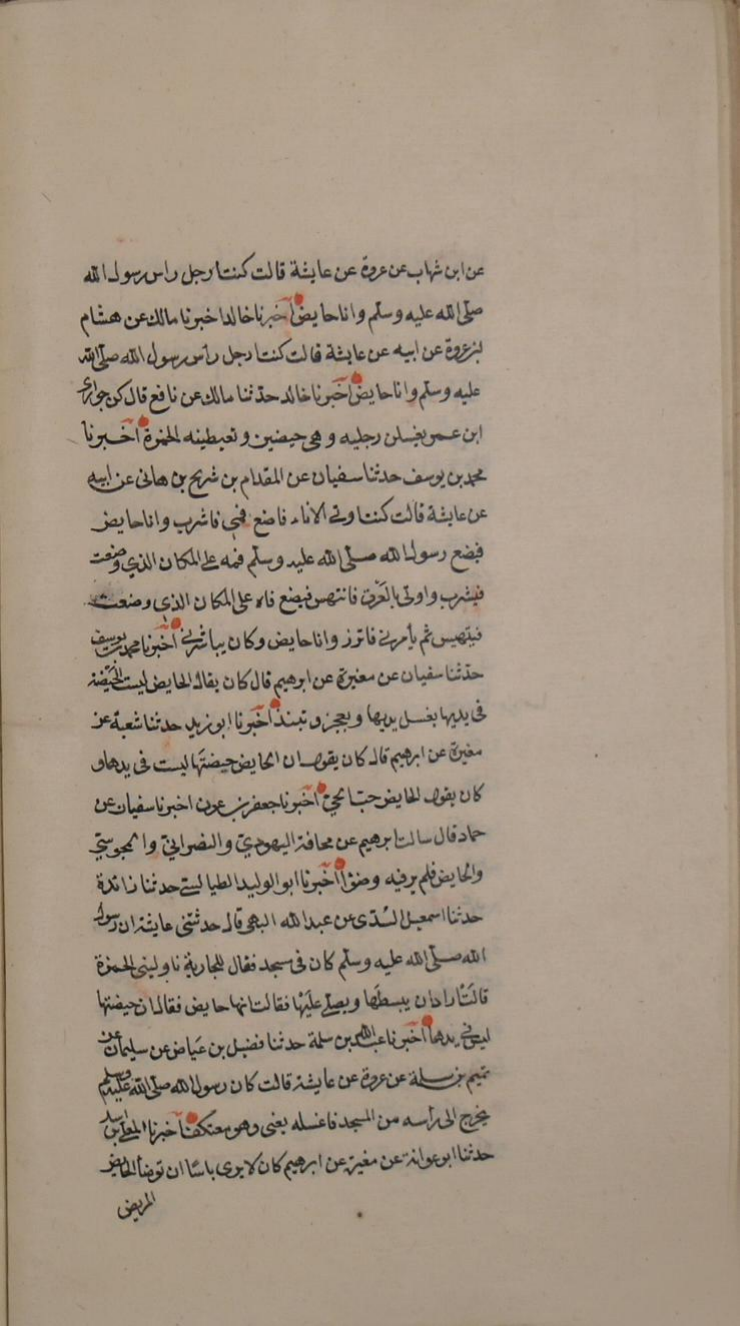 عن ابن شهاب عن عروة عن عايشة قالت كنت ارجل راس رسول الله
صلى الله عليه وسلم وانا حايض اخبرنا خالد اخبرنا مالك عن هشام
بن عروة عن ابيه عن عايشة قالت كنت ارجل رأس رسول الله صلى الله
عليه وسلم وانا حايض اخبرنا خالد حدثنا مالك عن نافع قال كن جواري
ابن عمر يغسلن رجليه وهن حيضن وتعيطينه الخمرة اخبرنا
محمد بن يوسف حدثنا سفيان عن المقدام بن شريح بن هانى عن ابيه
عن عايشة قالت كنت اوتى الاناء فاضع فمي فاشرب وانا حايض
فيضع رسول الله صلى الله عليه وسلم فمه على المكان الذي وضعت
فيشرب واوتى بالعرق فانتهس فيضع فاه على المكان الذي وضعت
فينتهس ثم يأمرني فاتزر وانا حايض وكان يباشرني اخبرنا محمد بن يوسف
حدثنا سفيان عن مغيرة عن ابرهيم قال كان يقال الحايض ليست الحيضة
فى يديها يغسل يديها ويعجن وتنبذ اخبرنا ابو زيد حدثنا شعبة عن
مغيرة عن ابرهيم قال كان يقول ان الحايض حيضتها ليست فى يدها و
كان يقول الحايض اخبرنا جعفر بن عون اخبرنا سفيان عن
حماد قال سالت ابرهيم عن مصافحة اليهودي والنصرانى والمجوسي
والحايض فلم ير فيه وضوا اخبرنا ابو الوليد الطيالسي حدثنا زائدة
حدثنا اسمعيل السدى عن عبد الله البهى قال حدثتنى عايشة ان رسول
الله صلى الله عليه وسلم كان فى مسجد فقال للجارية ناولينى الخمرة
قالت اراد ان يبسطها ويصلي عليها فقالت انها حايض فقال ان حيضتها
ليس فى يدها اخبرنا عبد الله بن سلمة حدثنا فضيل بن عياض عن سليمان عن
تميم بن سلمة عن عروة عن عايشة قالت كان رسول الله صلى الله عليه وسلم
يخرج الى رأسه من المسجد فاغسله يعنى وهو معتكف اخبرنا المعلى ابن اسد
حدثنا ابو عوانة عن مغيرة عن ابرهيم كان لا يرى باسا ان توضأ الحايض
المريض